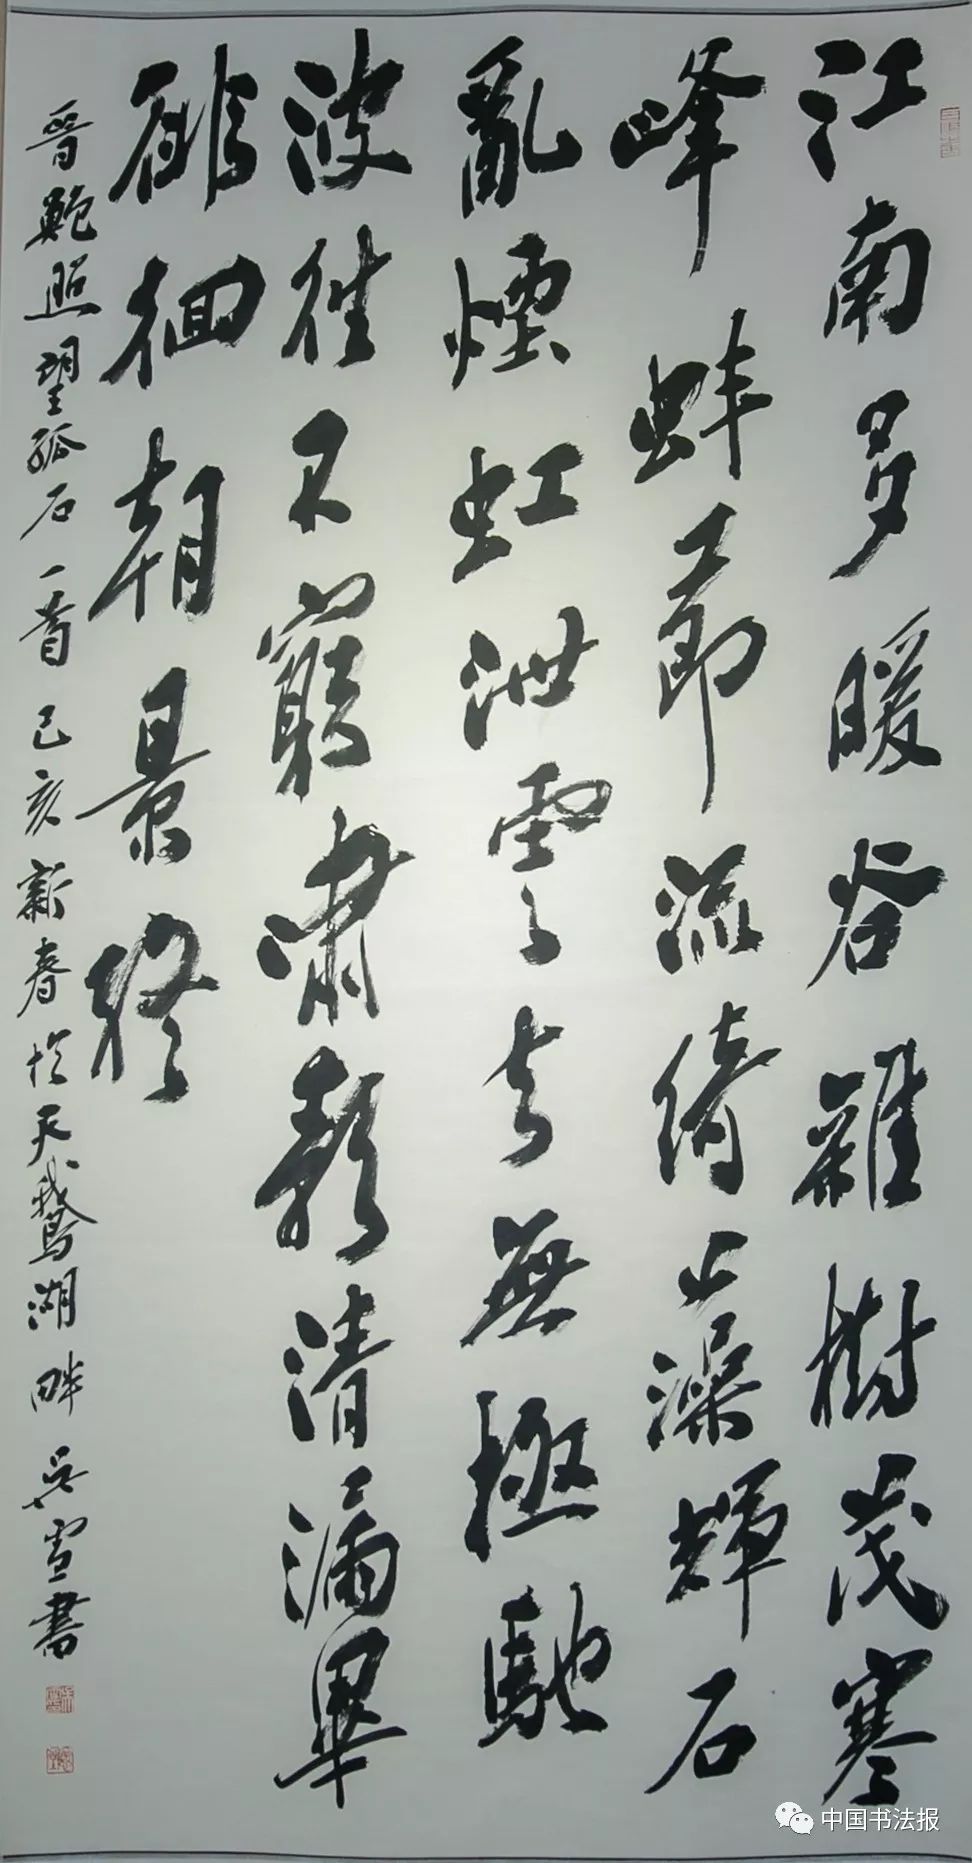 江南多暖谷雜樹茂寒
峰蚌節流綺藻輝石
亂煙虹泄雲去無極馳
波往不窮嘯歌清漏畢
徘徊朝景終
晉鮑照望孤石一首己亥新春於天鵝湖畔吳雪書
中国书法报